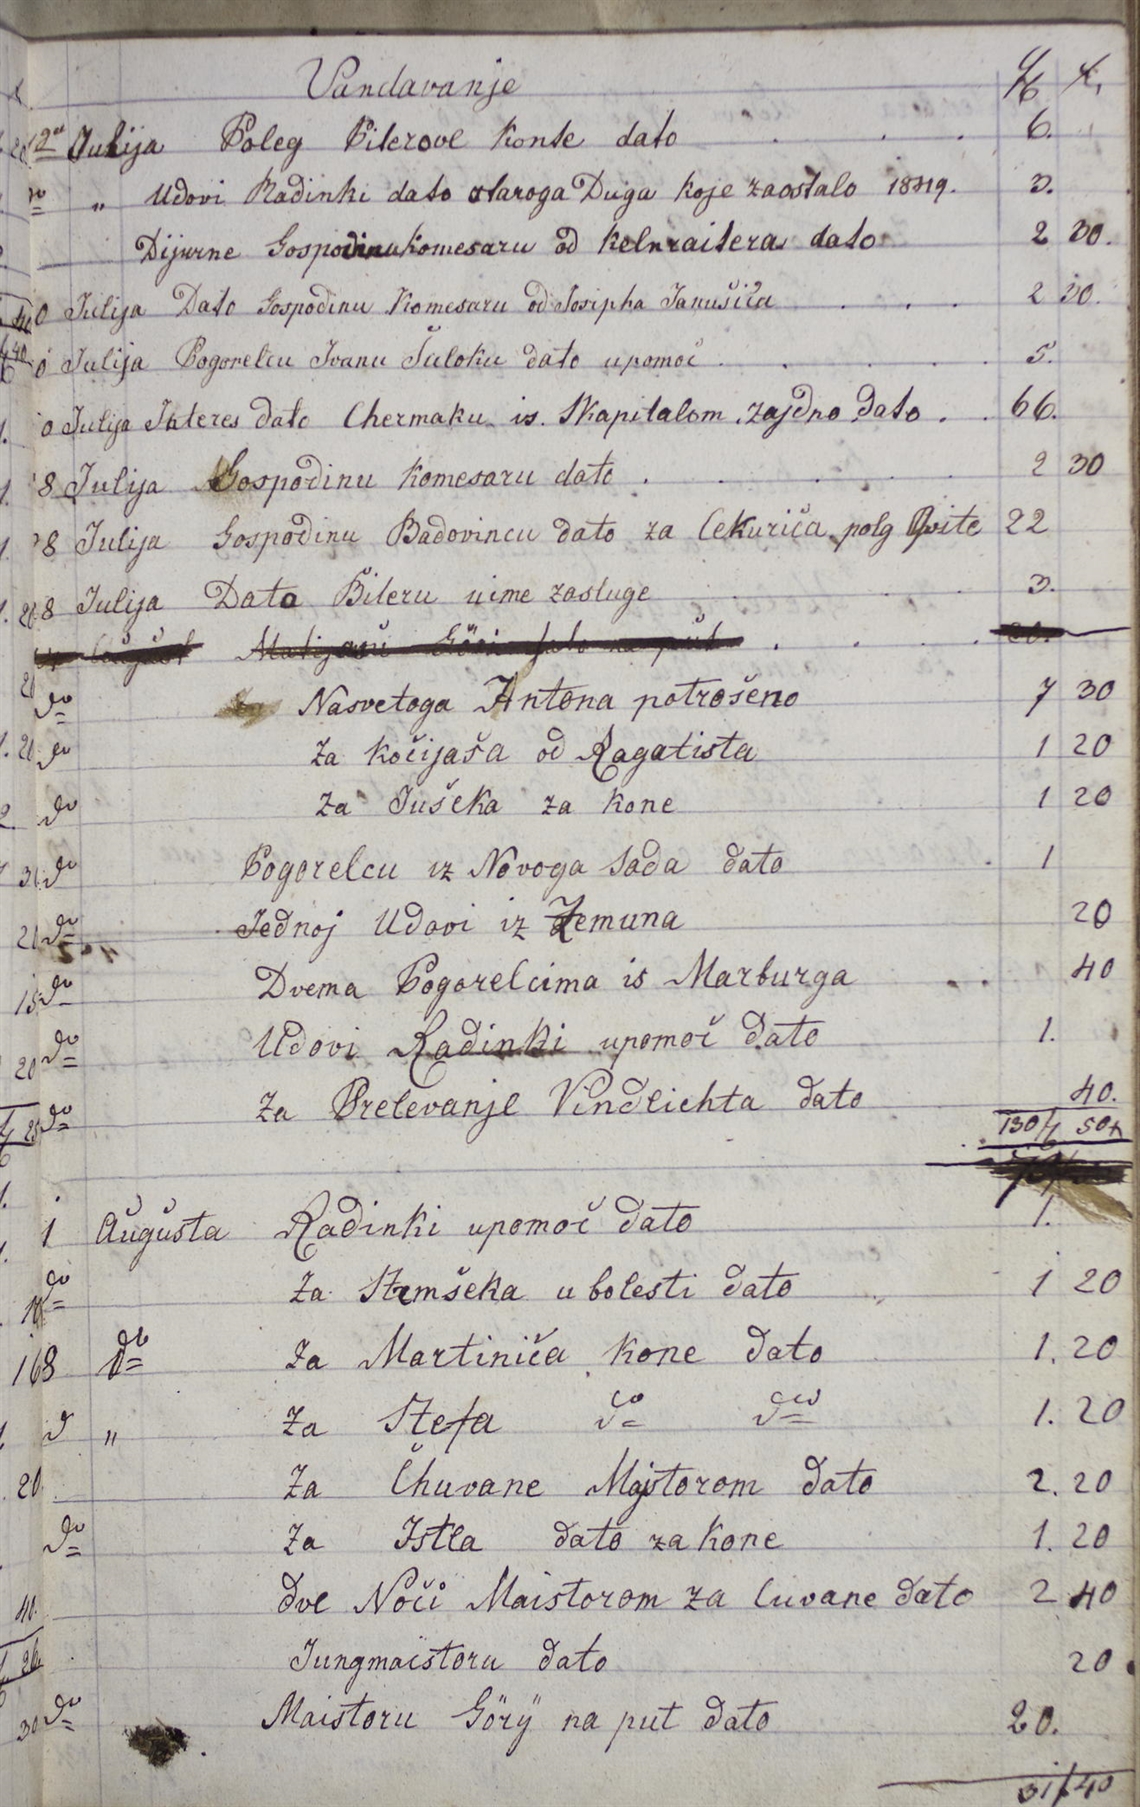 Vandavanje f x,
2 Julija Poleg Pilerove Konte dato 6.
do " Udovi Radinki dato staroga Duga koje zaostalo 3.
Dijurne Gospodinu Komesaru od Kelnraitera dato 2 30.
0 Julija Dato Gospodinu Komesaru od Josipha Janušića 2 30.
0 Julija Pogorelcu Ivanu Šuloku dato upomoč 5.
0 Julija Interes dato Chermaku is. Skapitalom zajdno dato 66.
8 Julija Gospodinu Komesaru dato 2 30
28 Julija Gospodinu Badovincu dato za Cekuriča polg Qvite 22
28 Julija Dato Pileru uime zasluge 3.
do Nasvetoga Antona potrošeno 7 30
do Za kočijaša od Ragatista 1 20
do Za Jušeka za kone 1 20
do Pogorelcu iz Novoga Sada dato 1
do Jednoj Udovi iz Zemuna 20
do Dvema Pogorelcima is Marburga 40
do Udovi Radinki upomoč dato 1.
do Za Prelevanje Vindlichta dato 40.
130f 50x
1 Augusta Radinki upomoč dato 1.
do Za Stemšeka u bolesti dato 1 20
8 do Za Martiniča Kone dato 1. 20
d " Za Stefa do do 1. 20
Za Čhuvane Majstorom dato 2. 20
do Za Istla dato za kone 1. 20
Dve Noči Maistorom za Cuvane dato 2 40
Jungmaistoru dato 20
do Maistoru Görÿ na put dato 20.
31f 40